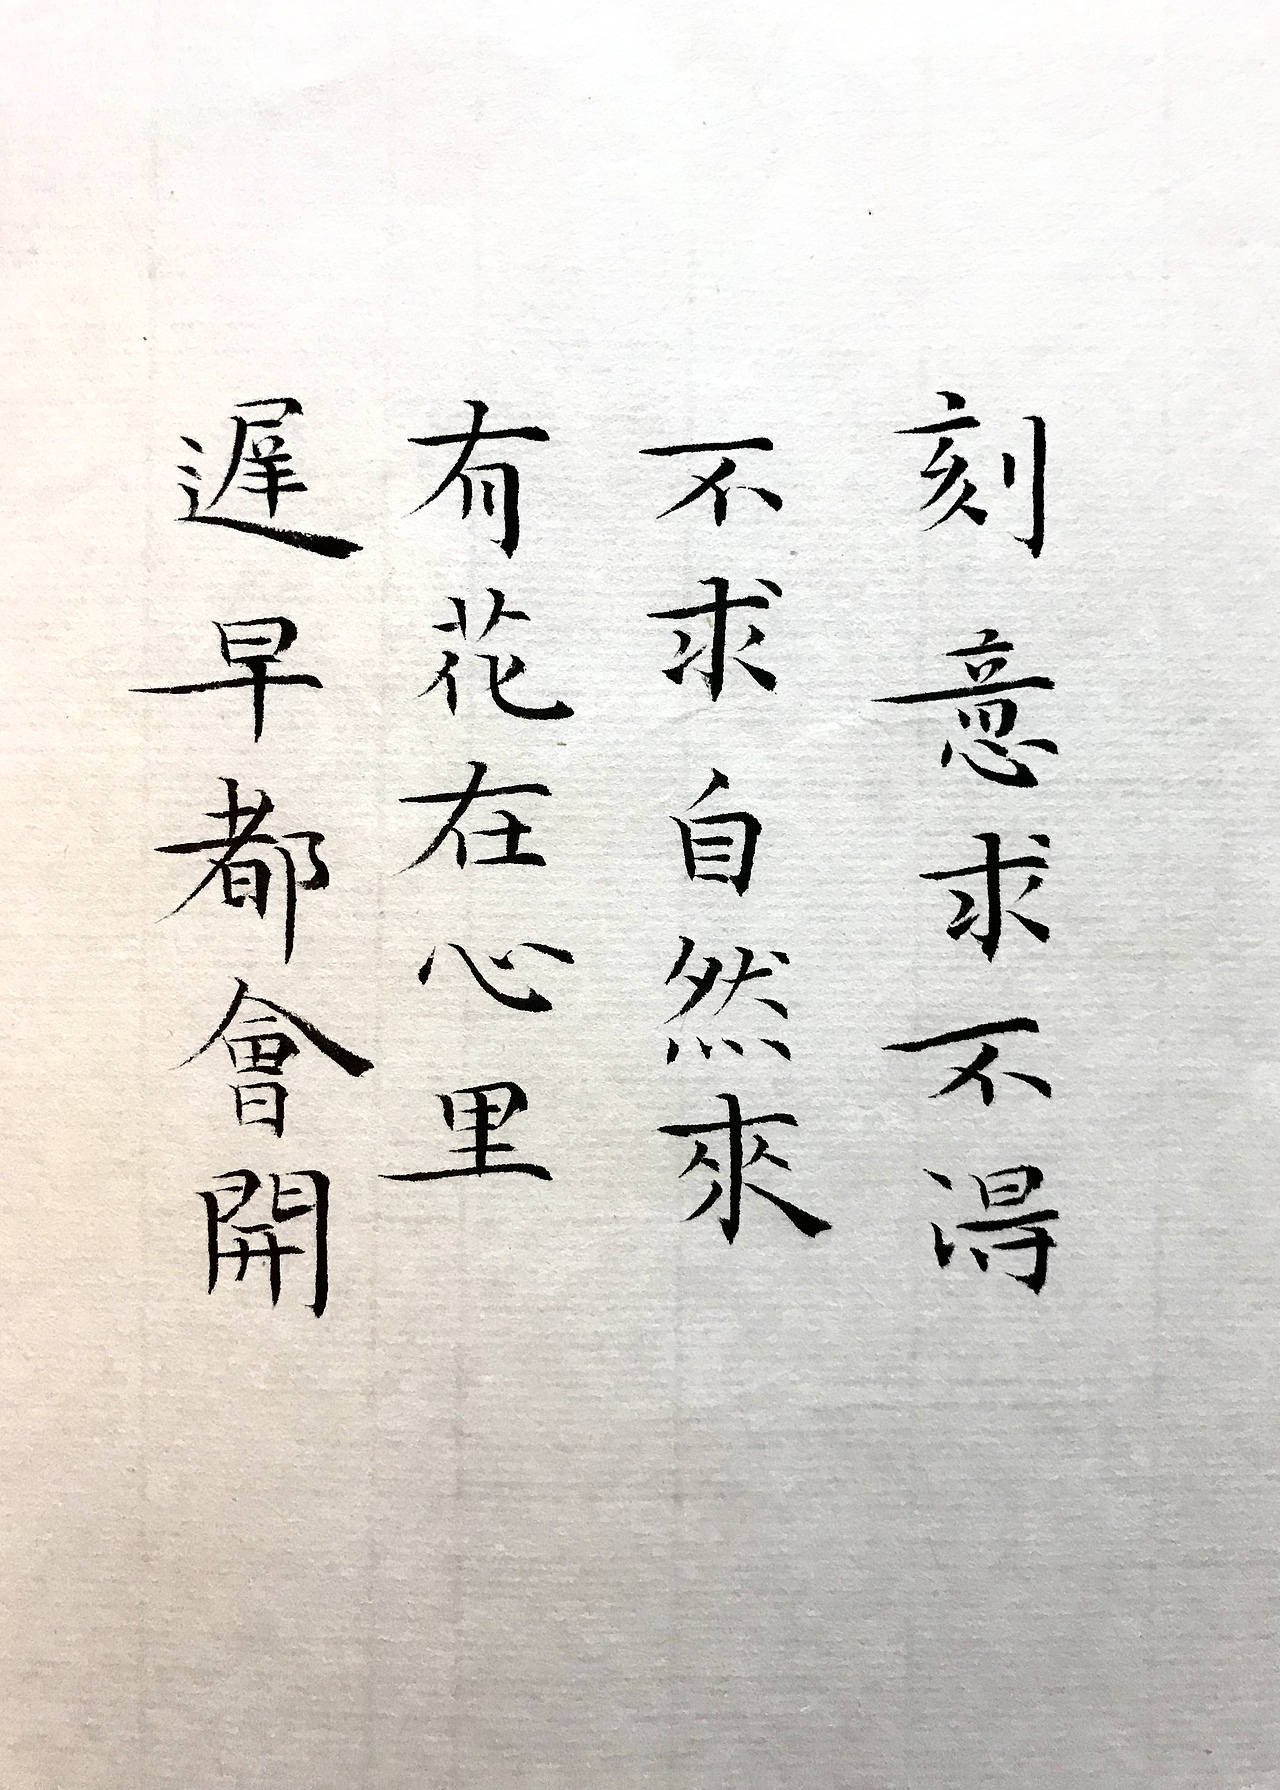 刻意求不得
不求自然來
有花在心里
遲早都會開